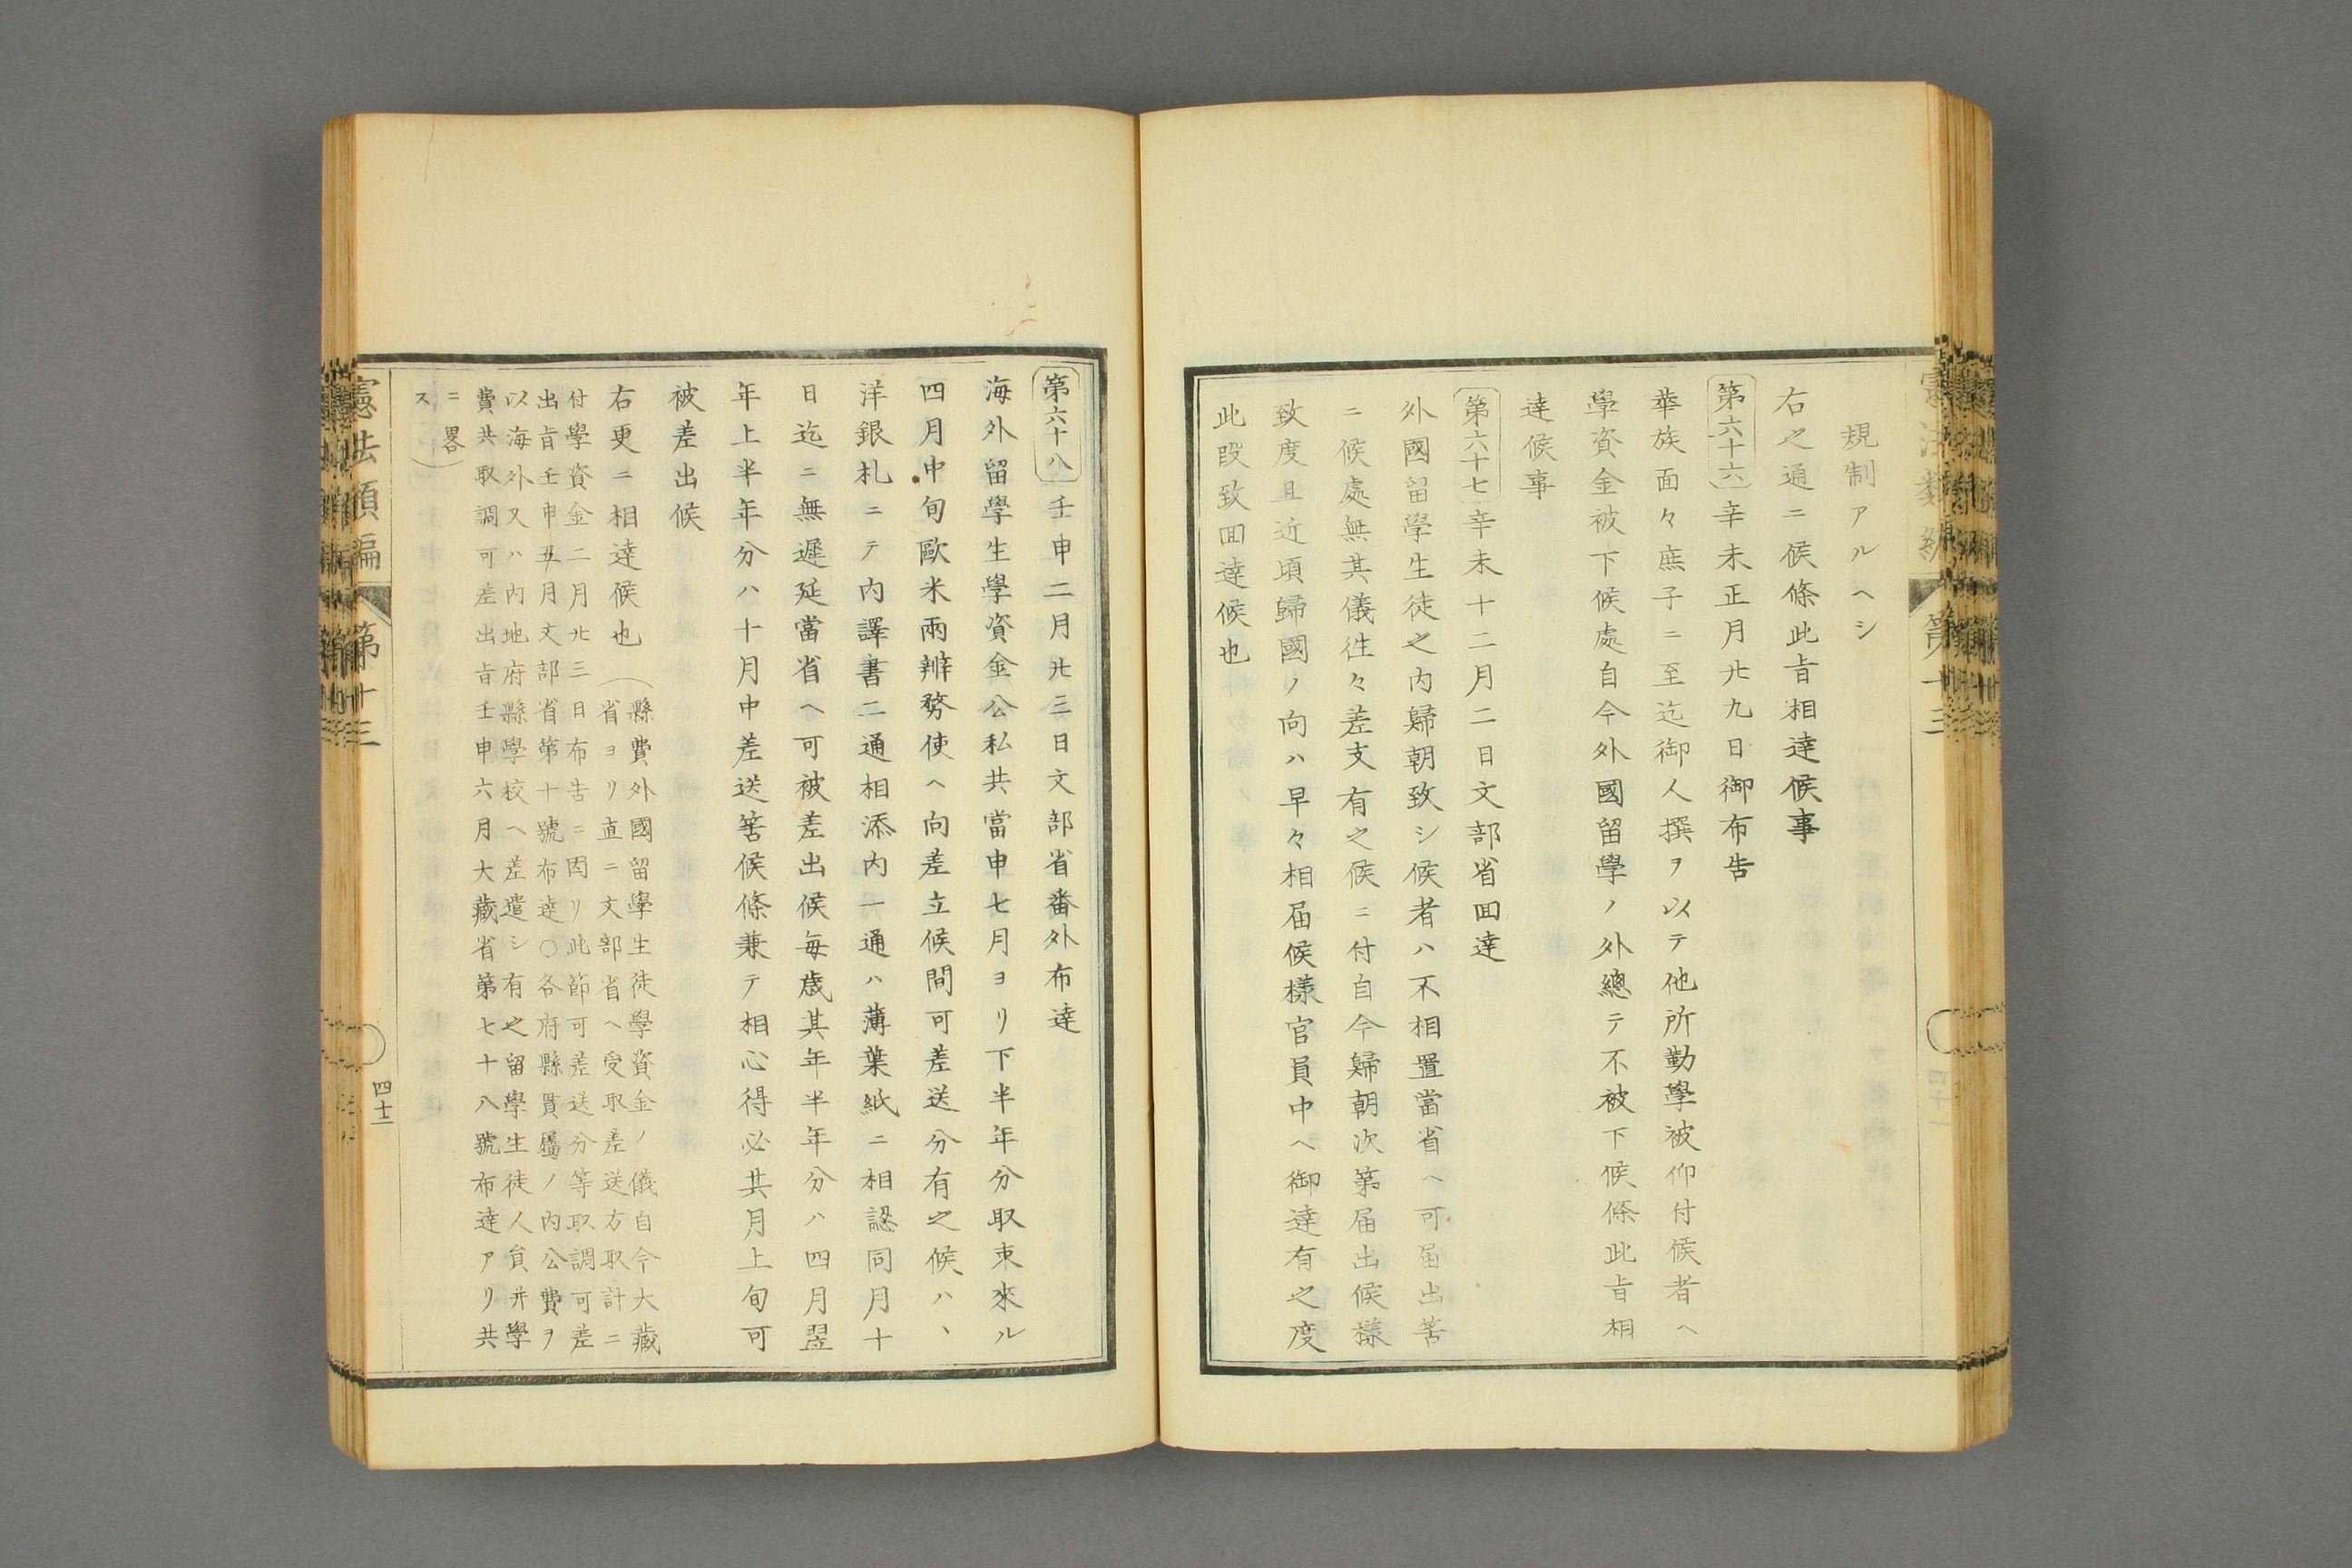 規制アルヘシ
右之通ニ候條此旨相達候事
第六十六 辛未正月廿九日御布告
華族面々庶子ニ至迄御人撰ヲ以テ他所勤學被仰付候者ヘ
學資金被下候處自今外國留學ノ外總テ不被下候條此旨相
達候事
第六十七 辛未十二月二日文部省回達
外國留學生徒之内歸朝致シ候者ハ不相置當省ヘ可届出筈
ニ候處無其儀徃々差支有之候ニ付自今歸朝次第届出候樣
致度且近頃歸國ノ向ハ早々相届候樣官員中ヘ御達有之度
此段致回達候也
第六十八 壬申二月廿三日文部省番外布達
海外留學生學資金公私共當申七月ヨリ下半年分取束來ル
四月中旬歐米兩辨務使ヘ向差立候間可差送分有之候ハヽ
洋銀札ニテ内譯書二通相添内一通ハ薄葉紙ニ相認同月十
日迄ニ無遲延當省ヘ可被差出候毎歳其年半年分ハ四月翌
年上半年分ハ十月中差送筈候條兼テ相心得必其月上旬可
被差出候
右更ニ相達候也（縣費外國留學生徒學資金ノ儀自今大藏
省ヨリ直ニ文部省ヘ受取差送方取計ニ
付學資金二月廿三日布告ニ因リ此節可差送分等取調可差
出旨壬申五月文部省第十號布達〇各府縣貫屬ノ内公費ヲ
以海外又ハ内地府縣學校ヘ差遣シ有之留學生徒人員并學
費共取調可差出旨壬申六月大藏省第七十八號布達アリ共
ニ畧
ス）
憲法類編 第十三
四十二